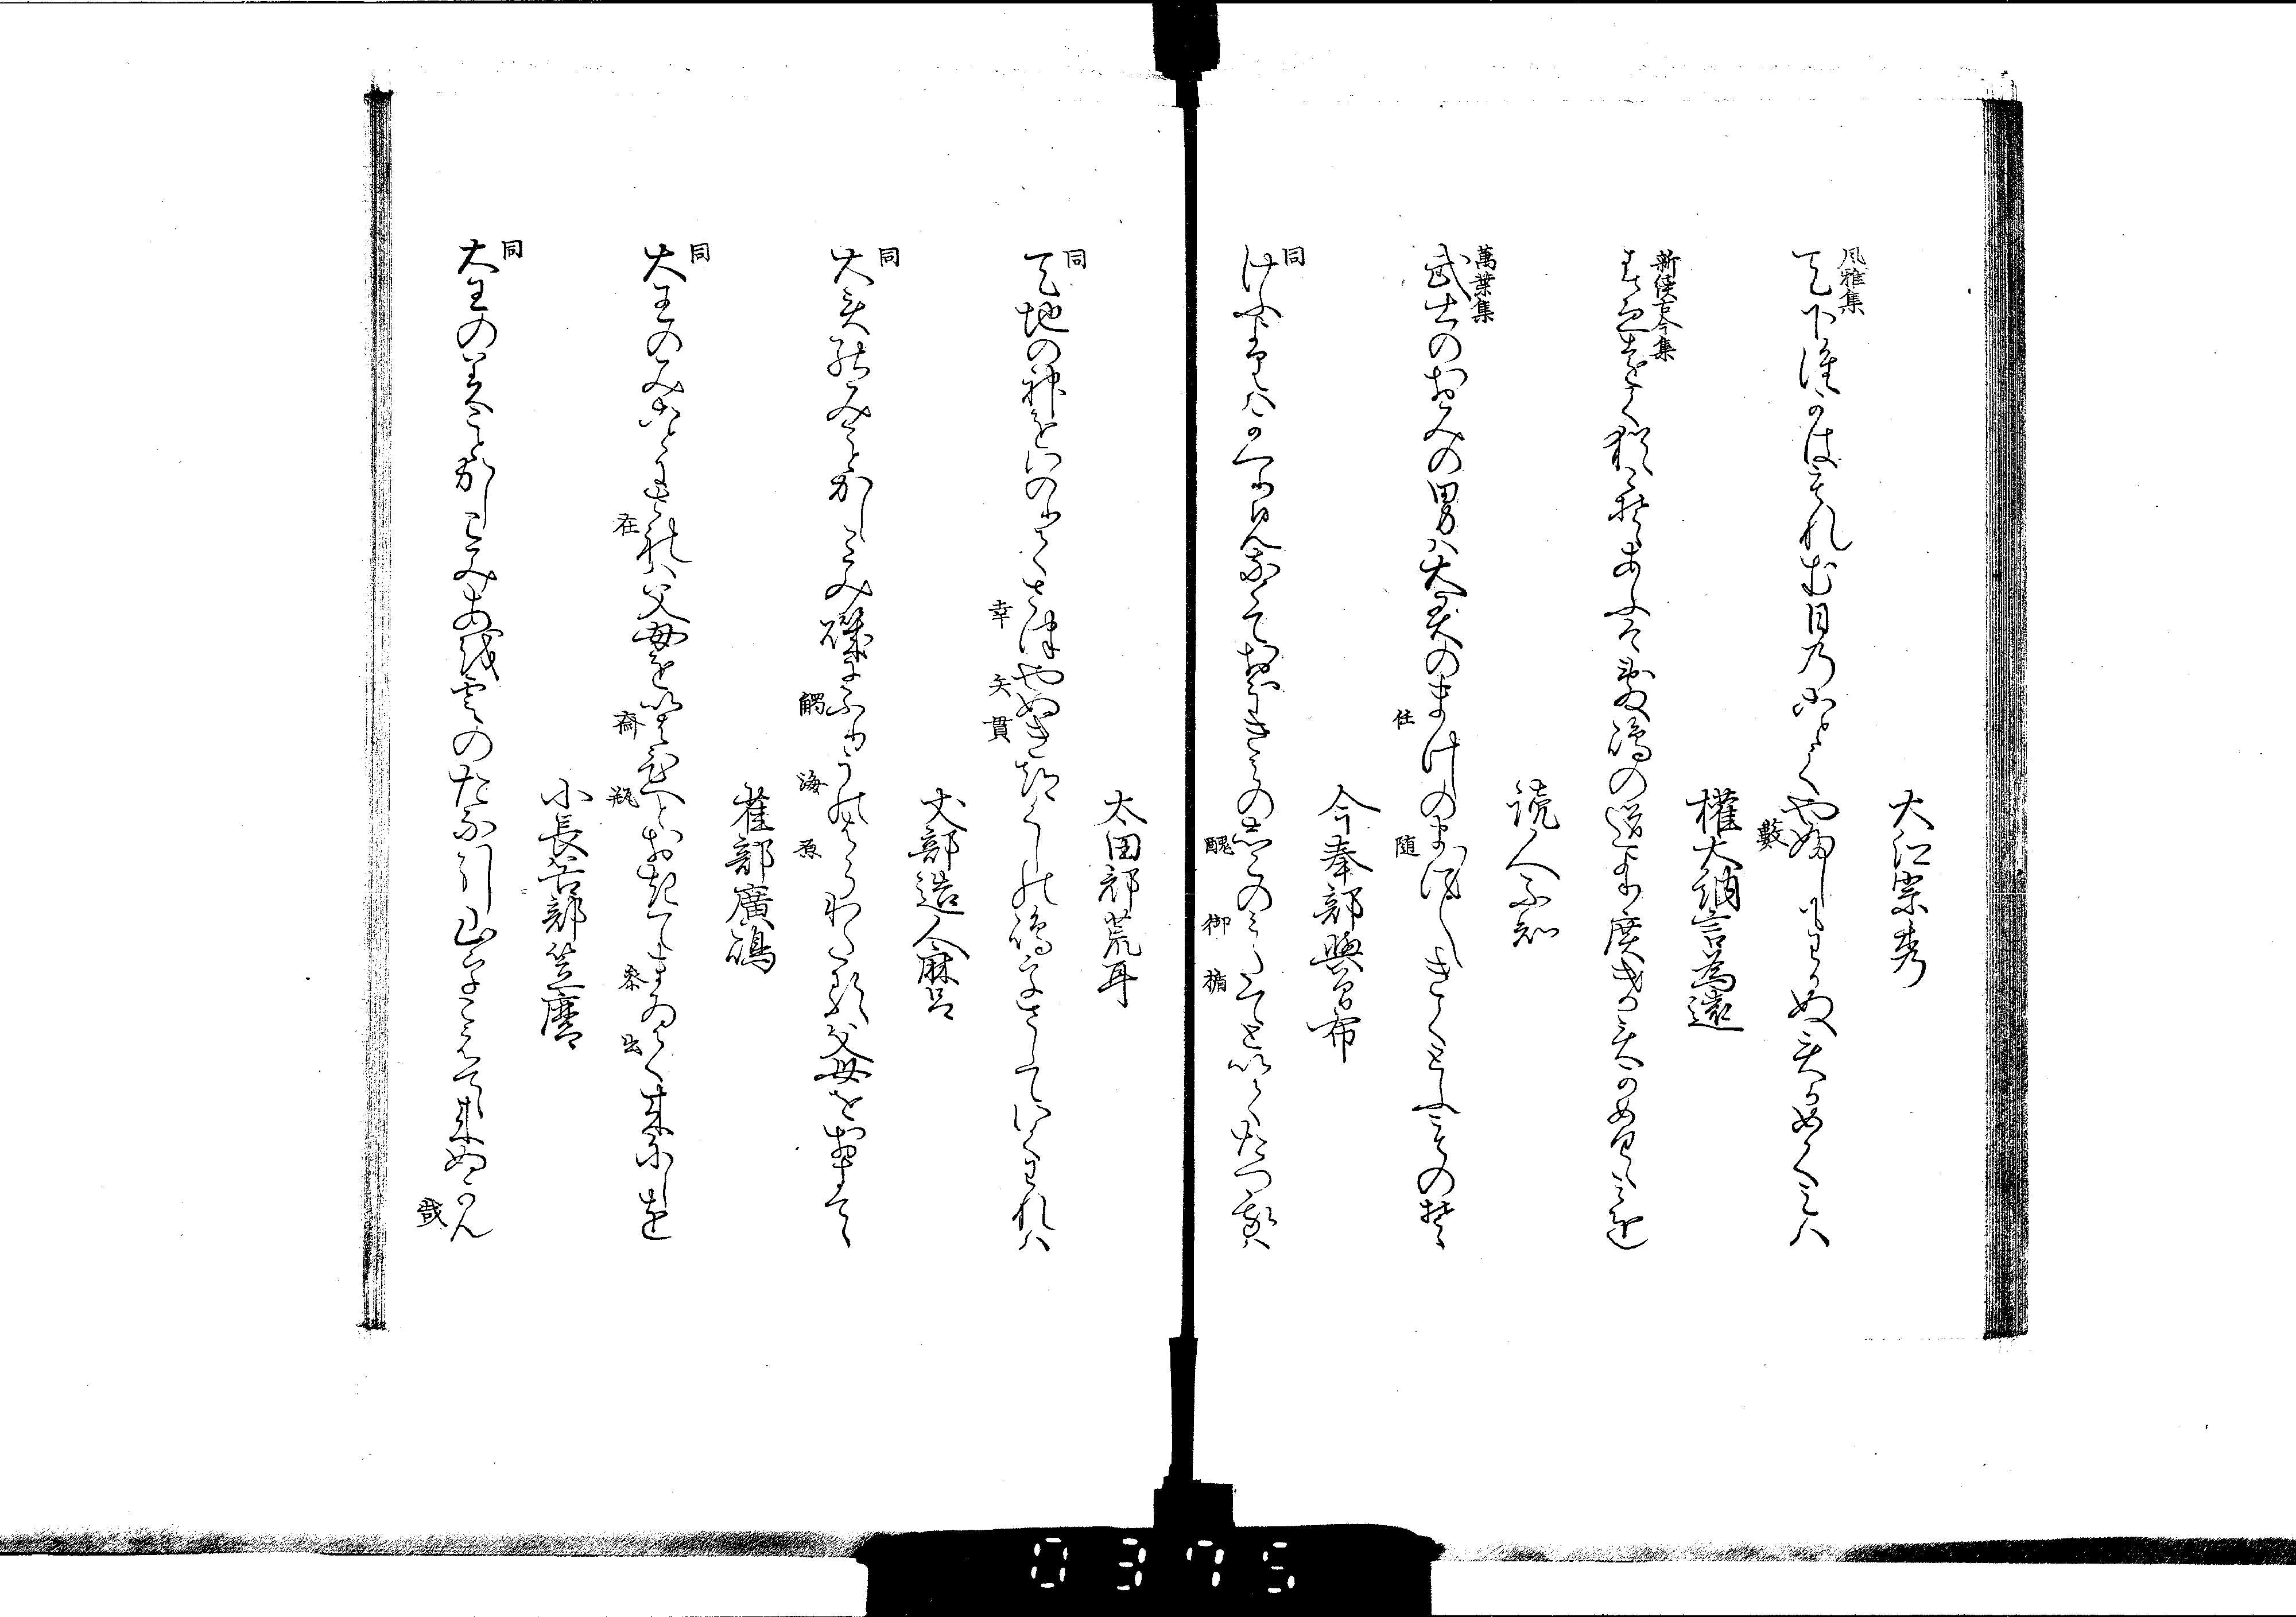 大江宗秀
風雅集
天下誰かはもれむ日のことくやふしもわかぬ君かめくみは
藪
權大納言為遠
新續古今集
猶そあふく敷嶋の道ある広き君かめくみを
読人不知
萬葉集
武士のおみの男は大君のまけのまにまにきくといふものそ
任 随
今奉部與曽布
同
けふよりはかへりみなくて大きみの志このみたてといてたつ我は
醜 御 楯
太田部荒耳
同
天地の神をいのりてさつやぬきつくしの嶋をさしていくわれは
幸 矢 貫
丈部造人麻呂
同
大君のみことかしこみ磯にふりうのはらわたる父母をおきて
觸 海 原
雀部廣嶋
同
大王のみことにされは父母をいはひへとおきてまゐて来にしを
在 斎 瓶 参 出
小長谷部笠麿
同
大王のみことかしこみあを雲のたな引山をこえて来ぬかん
哉
0375